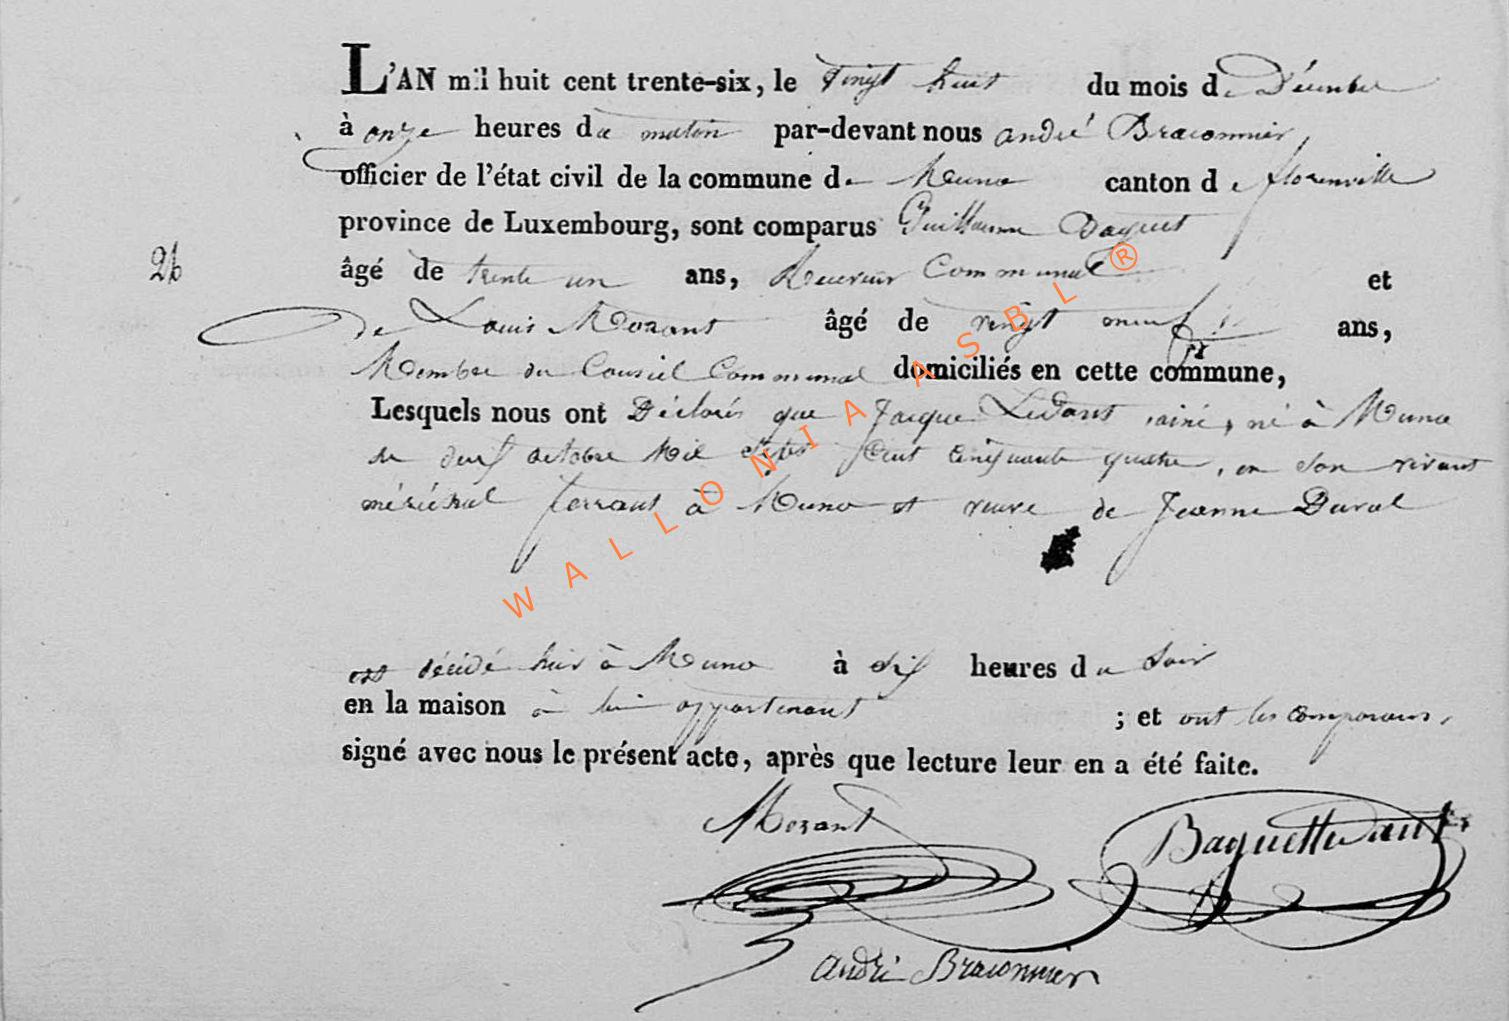 L'AN mil huit cent trente-six, le vingt huit du mois de Décembre
à onze heures du matin par-devant nous andré Braconnier
officier de l'état civil de la commune de Muno canton de florenville
province de Luxembourg, sont comparus Guillaume Baquet
26 âgé de trente un ans, Receveur Communal et
de Louis Mozant âgé de vingt neuf ans,
Membre du Conseil Communal domiciliés en cette commune,
Lesquels nous ont Déclarés que Jacque Ledant, ainé, né à Muno
le octobre Mil Sept Cent Cinquante quatre, en Son vivant
méréchal ferrant à Muno et veuve de Jeanne Duval
est décédé hier à Muno à Six heures du Soir
en la maison à lui appartenant ; et ont les comparans,
signé avec nous le présent acte, après que lecture leur en a été faite.
Mozant Baquet
andré Braconnier
WALLONIA ASBL ®